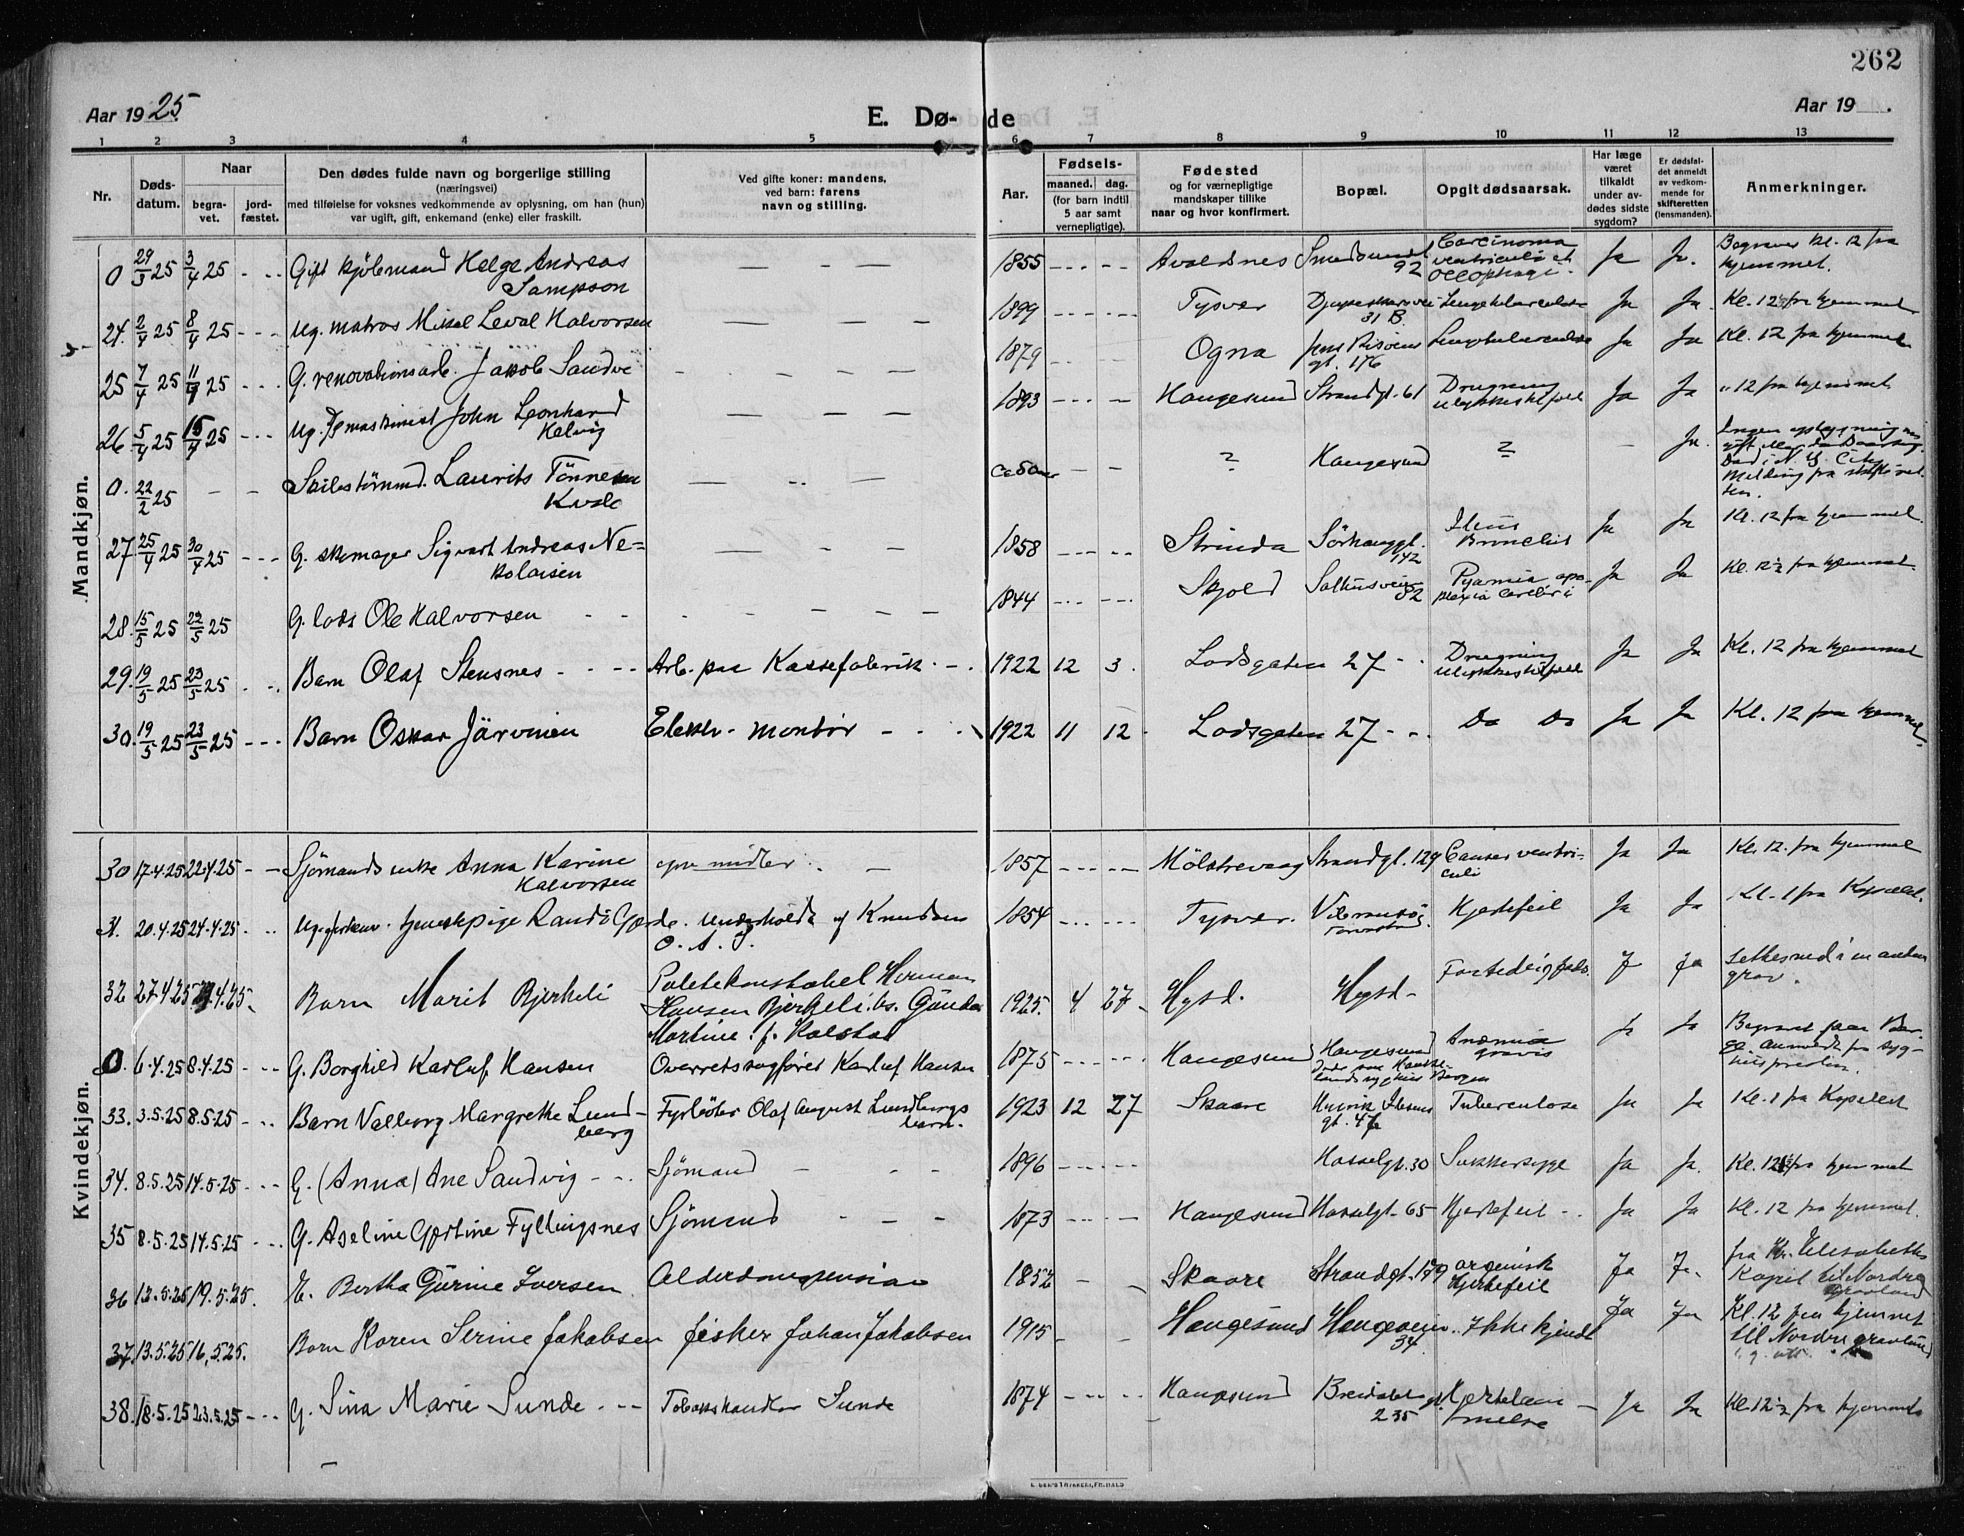 262
Aar 1925.
E. Dø-
de
Aar 19 .
1 2 3 4 5 6 7 8 9 10 11 12 13
Nr.
Døds-
datum.
Naar
begra-
vet.
jord-
fæstet.
Den dødes fulde navn og borgerlige stilling
(næringsvei)
med tilføielse for voksnes vedkommende av oplysning, om han (hun)
var ugift, gift, enkemand (enke) eller fraskilt.
Ved gifte koner: mandens,
ved barn: farens
navn og stilling.
Aar.
Fødsels-
maaned. dag.
(for barn indtil
5 aar samt
vernepligtige).
Fødested
og for værnepligtige
mandskaper tillike
naar og hvor konfirmert.
Bopæl.
Opgit dødsaarsak.
Har læge
været
tilkaldt
under av-
dødes sidste
sygdom?
Er dødsfal-
det anmeldt
av vedkom-
mende for
skifteretten
(lensmanden).
Anmerkninger.
Mandkjøn.
0 29/3 25 3/4 25 Gift kjøbmand Helge Andreas
Sampson
1855 Avaldnes Smedsundet
92
Carcinoma
ventriculi et
Ja Ja. Begraves kl. 12 fra
hjemmet.
24. 2/4 25 8/4 25 Ug. matros Mikal Leval Halvorsen
1899 Tysvær
31 B.
Lungetuberculose Ja Ja. Kl. 12½ fra hjemmet
25 7/4 25 11/4 25 G. renovationsarb. Jakob Sandve
1879 Ogna
gt. 176
Lungetuberculose Ja Ja Kl. 12 fra hjemmet
26. 5/4 25 15/4 25 Ug. John Leonhard
Helvig
1893 Haugesund Strandgt. 61 Drugning
ulykkestilfæld
Ja Ja " 12 fra hjemmet
0. 22/2 25 Laurits Tönnesen
Kvale
? Haugesund ? Ja.
Ingen oplysning om
Død i N. Y. City
Melding fra skifteret-
ten.
27 25/4 25 30/4 25 G. skomager Sigvart Andreas Ne-
kolaisen
1858 Strinda Sörhauggt.
142
Ileus
Ja Ja Kl. 12 fra hjemmet.
28. 15/5 25 22/5 25 G. lods Ole Halvorsen
1844 Skjold Salhusveien
82
Pyæmia apo-
plexia cerebri
Ja Ja Kl. 12½ fra hjemmet.
29. 19/5 25 23/5 25 Barn Olaf Stensnes Arb. paa Kassefabrik
1922 12 3. Lodsgaten 27 Drugning
ulykkestilfæld
Ja Ja Kl. 12 fra hjemmet
30. 19/5 25 23/5 25 Barn Oskar Järvinen Elektr. montör
1922 11 12. Lodsgaten 27 Do Do Ja Ja Kl. 12 fra hjemmet.
Kvindekjøn.
30 17.4.25 22.4.25 Sjömands enke Anna Karine
Halvorsen
egne midler.
1857 Mölstrevaag Strandgt. 129 Cancer ventri-
culi
Ja Ja Kl. 12. fra hjemmet
31. 20.4.25 24.4.25 tjenestepige Randi Gjerde. Underholdt af Knudsen
O. A. S.
1854 Tysvær. Hjertefeil Ja Ja Kl. 1 fra Kapellet.
32 27.4.25 4.25 Barn Marit Bjerkeli
Politikonstabel Herman
Hansen Bjerkeli
Martine f. Kolstad
1925. 4 27 Hgsd. Hgsd. Ja Ja
grav.
0. 6.4.25 8.4.25 G. Borghild Karluf Hansen Overretssagfører Karluf Hansen
1875 Haugesund Haugesund
Anæmia
gravis
Ja Ja Begravet fra Ber-
ge
33. 3.5.25 8.5.25 Barn Valborg Margrethe Lund-
berg
Fyrböter Olaf August Lundbergs
barn.
1923 12 27 Skaare Henrik Ibsens
gt. 47
Tuberculose Ja Ja Kl. 1 fra Kapellet
34. 8.5.25 14.5.25 G. (Anna) Ane Sandvig Sjömand
1896 Hasselgt. 30 Sukkersyge Ja Ja. Kl. 12½ fra hjemmet
35 8.5.25 14.5.25 G. Aseline Gjertine Fyllingsnes Sjömand
1873 Haugesund Hasselgt. 65 Hjertefeil Ja Ja Kl. 12 fra hjemmet.
36 12.5.25 19.5.25. E. Bertha Gurine Iversen Alderdomspension
1852 Skaare Strandgt. 179 organisk
hjertefeil
Ja Ja. fra Elisabeths
Kapel til Nordre
Gravlund
37. 13.5.25 16.5.25. Barn Karen Serine Jakobsen fisker Johan Jakobsen
1915 Haugesund Haugeveien
34.
Ikke kjendt Ja Ja Kl. 12 fra hjemmet
til Nordre gravlund
38. 18.5.25 23.5.25 G. Sina Marie Sunde Tobakshandler Sunde
1874 Haugesund Breidablikgt.
235
Hjertelam-
melse
Ja Ja Kl. 12½ fra hjemmet